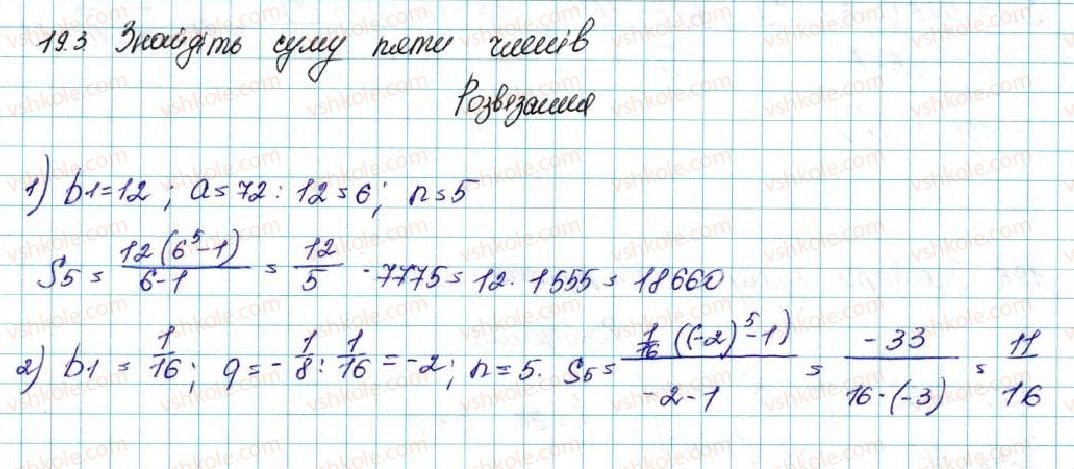 19.3 Знайдіть суму пяти членів
Розвязання
1) b1 = 12 ; a = 72 : 12 = 6 ; n = 5
S5 = 12(6^5-1)/6-1 = 12/5 · 7775 = 12 · 1555 = 18660
2) b1 = 1/16 ; q = -1/8 : 1/16 = -2 ; n = 5. S5 = 1/16((-2)^5-1)/-2-1 = -33/16·(-3) = 11/16